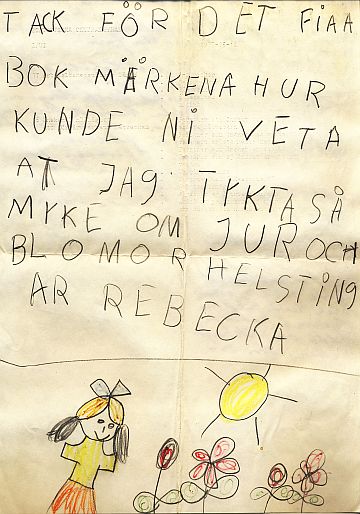 TACK FÖR DET FIAA
BOK MÄRKENA HUR
KUNDE NI VETA
AT JAG TYKTA SÅ
MYKE OM JUR OCH
BLOMOR HELSTING
AR REBECKA